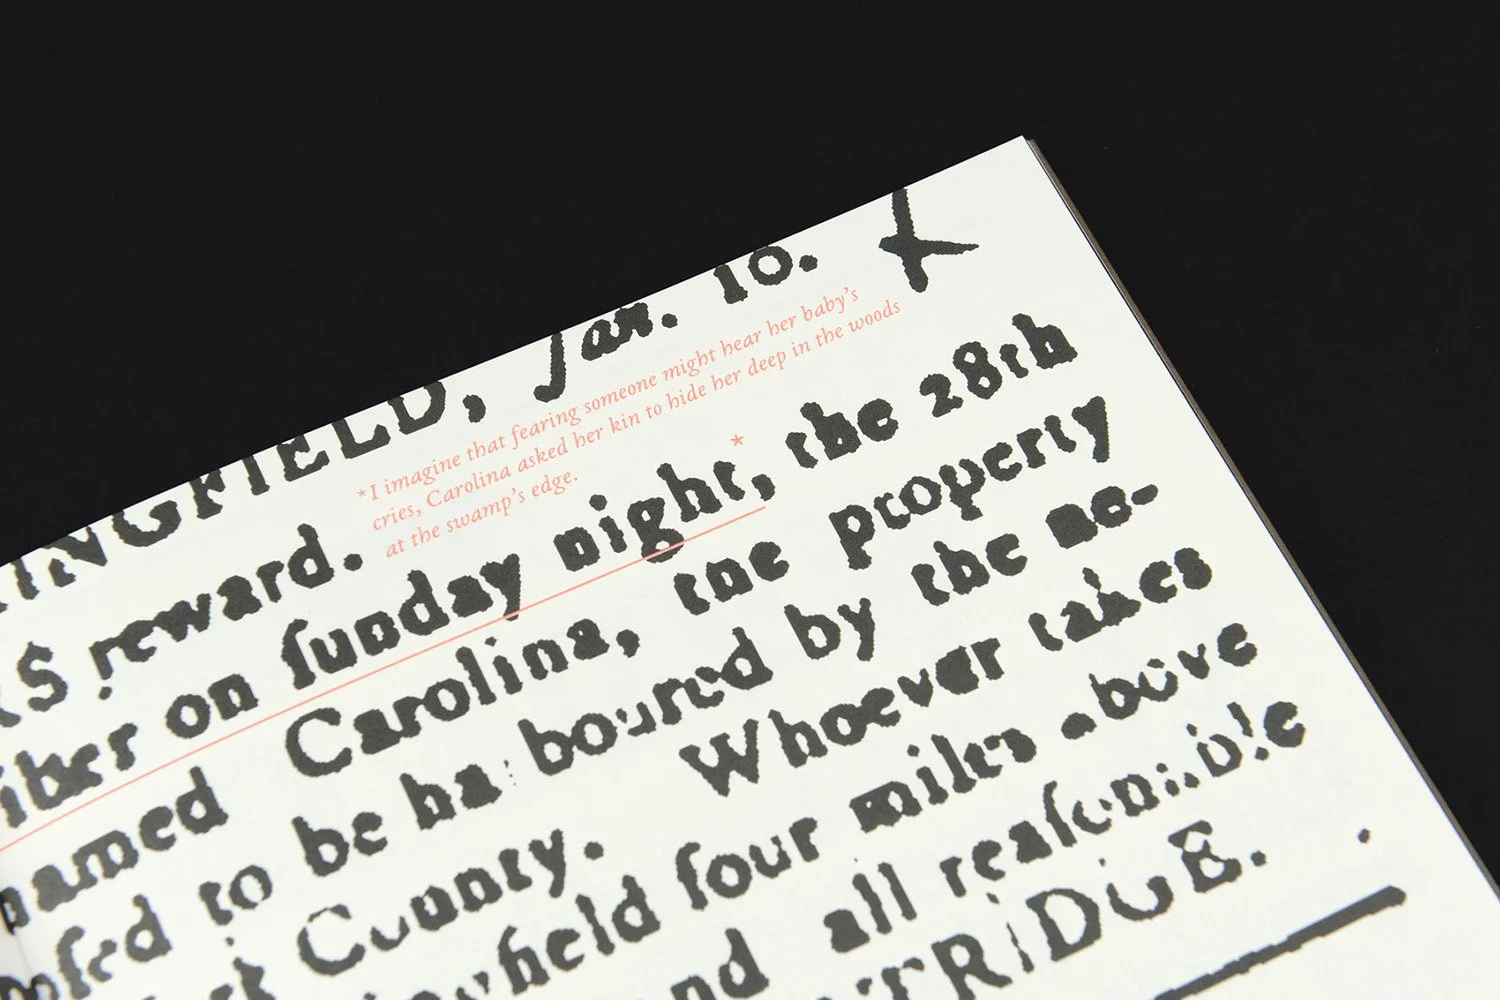 INGFIELD, Jan. 10.
*I imagine that fearing someone might hear her baby's
cries, Carolina asked her kin to hide her deep in the woods
at the swamp's edge.
S reward.
iber on ſunday night,* the 28th
named Carolina, the property
to be ha boured by the ne-
County. Whoever takes
field four miles above
all reaſon
TRIDGE.